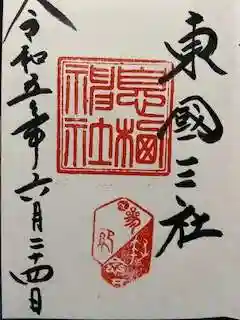 東國三社
息栖
神社
令和五年六月二十四日